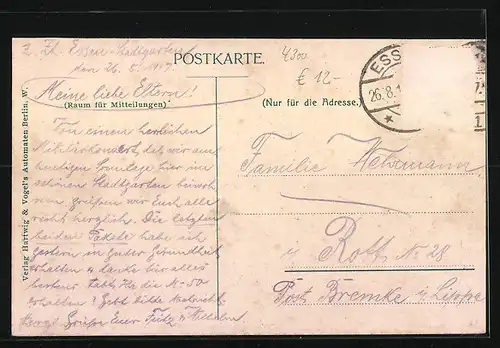 Z. Zt. Essen-Stadtgarten
den 26. 8. 1917
POSTKARTE.
4300
€ 12.-
ESS
26.8.1
Meine liebe Eltern!
(Raum für Mitteilungen)
(Nur für die Adresse.)
Von einem herrlichen
Militärkonzert, das wir am
heutigen Sonntage hier im
schönen Stadtgarten
grüßen wir Euch alle
recht herzlich. Die letzten
beiden Pakete habe ich
gestern in guter Gesundheit
erhalten u. danke für alles
bestens. Habt Ihr die M 50
erhalten? Gebt bitte
Grüße Euer Fritz u. Wilhelm.
Familie
i. Rott No 28
Post Bremke i. Lippe
Verlag Hartwig & Vogel's Automaten Berlin, W.